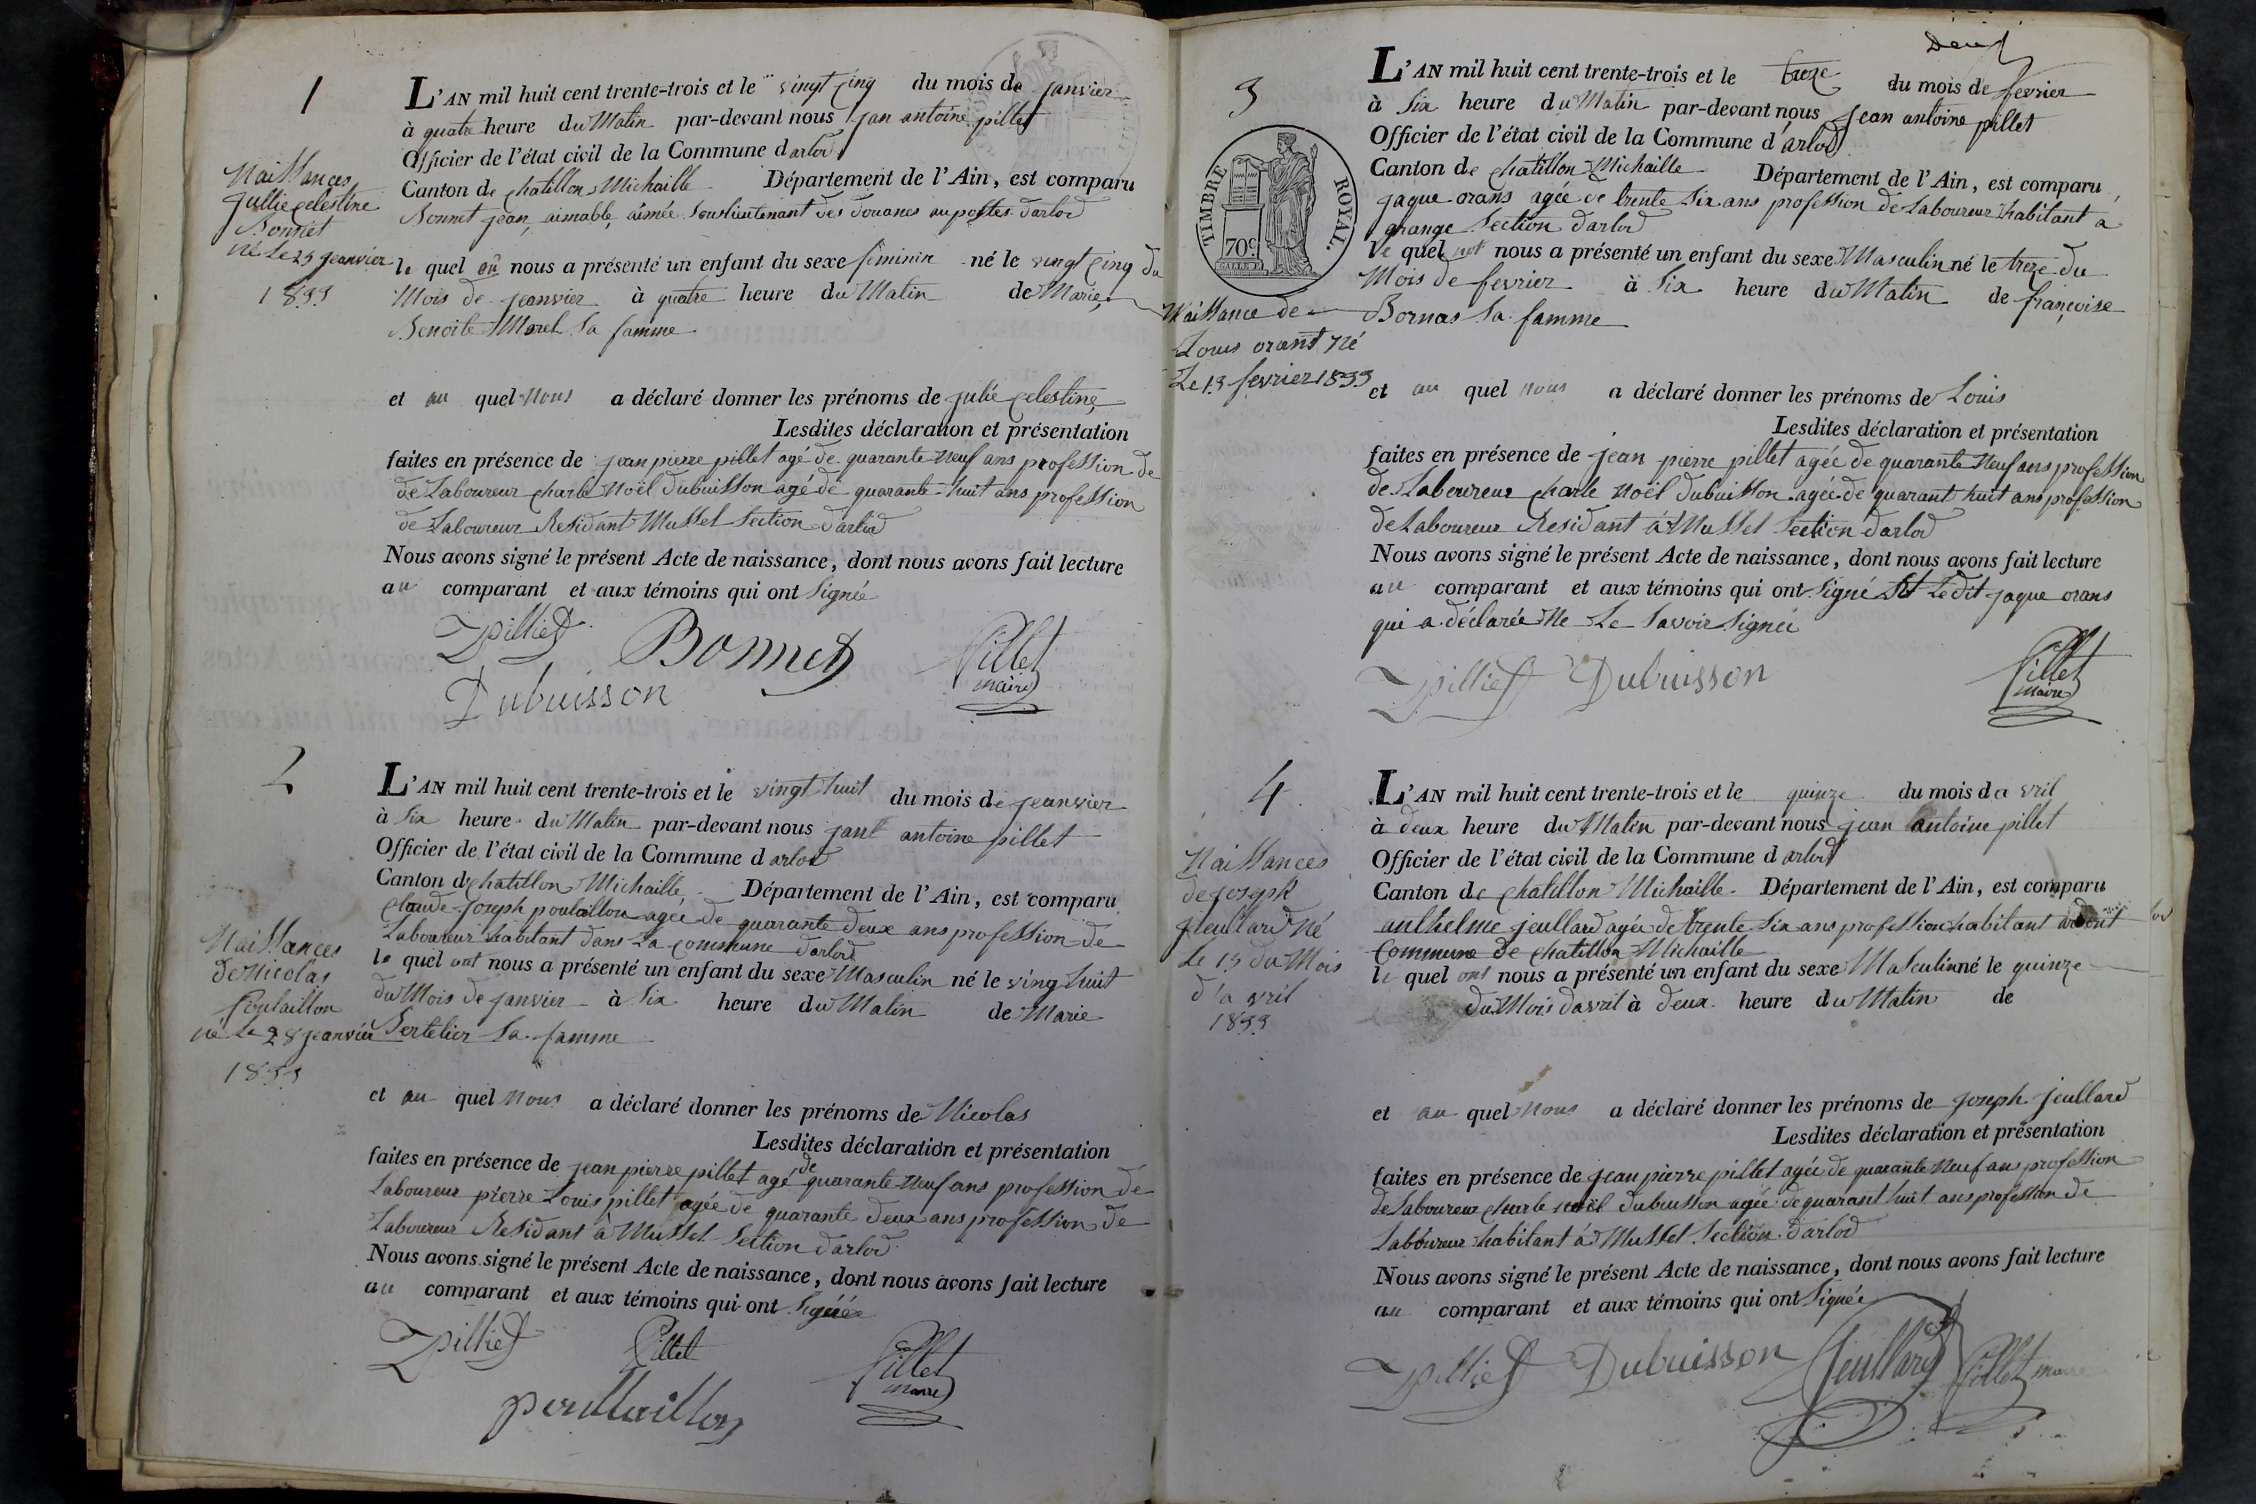 1
Naissances
Jullie celestine
Bonnet
né Le 25 jeanvier
1833
L'AN mil huit cent trente-trois et le vingt cinq du mois de janvier
à quatre heure du Matin par-devant nous jan antoine pillet
Officier de l'état civil de la Commune d arlod
Canton de chatillon Michaille Département de l'Ain, est comparu
Bonnet jean, aimable, aimée Souslieutenant des douanes au postes darlod
le quel nous a présenté un enfant du sexe féminin né le vingt cinq du
Mois de jeanvier à quatre heure du Matin de Marie,
Benoite Morel Sa famme
et au quel nous a déclaré donner les prénoms de julie celestine,
Lesdites déclaration et présentation
faites en présence de jean pierre pillet agé de quarante neuf ans profession de
de Laboureur charle Noël Dubuisson agé de quarante-huit ans profession
de Laboureur Residant Mussel Section darlod
Nous avons signé le présent Acte de naissance, dont nous avons fait lecture
au comparant et aux témoins qui ont Signée
Pilliet Bonnet Pillet
maire
Dubuisson
2
Naissances
de Nicolas
Poulaillon
né Le 28 jeanvier
1833
L'AN mil huit cent trente-trois et le vingt huit du mois de jeanvier
à Six heure du Matin par-devant nous jant antoine pillet
Officier de l'état civil de la Commune d arlod
Canton d chatillon Michaille, Département de l'Ain, est comparu
claude joseph poulaillon agée de quarante deux ans profession de
Laboureur habitant dans La commune darlod
le quel ont nous a présenté un enfant du sexe Masculin né le ving huit
du Mois de janvier à Six heure du Matin de Marie
Bertelier Sa famme
et au quel nous a déclaré donner les prénoms de Nicolas
Lesdites déclaration et présentation
faites en présence de jean pierre pillet agé de quarante neuf ans profession de
Laboureur pierre Louis pillet agée de quarante deux ans profession de
Laboureur Residant à Mussel Section darlod
Nous avons signé le présent Acte de naissance, dont nous avons fait lecture
au comparant et aux témoins qui ont Signée
Pilliet Pillet Pillet
maire
poullaillon
Deux
3
TIMBRE ROYAL.
70c.
Naissance de
Louis orant né
Le 13 fevrier 1833
L'AN mil huit cent trente-trois et le treze du mois de fevrier
à Six heure du Matin par-devant nous jean antoine pillet
Officier de l'état civil de la Commune d'arlod
Canton de chatillon Michaille Département de l'Ain, est comparu
jaque orans agée de trente Six ans profession de Laboureur habitant a
grange Section darlod
le quel nous a présenté un enfant du sexe Masculin né le treze du
Mois de fevrier à Six heure du Matin de françoise
Bornas Sa famme
et au quel nous a déclaré donner les prénoms de Louis
Lesdites déclaration et présentation
faites en présence de jean pierre pillet agée de quarante neuf ans profession
de Laboureur charle Noël dubuisson agée de quarant huit ans profession
de Laboureur Residant à Mussel Section darlod
Nous avons signé le présent Acte de naissance, dont nous avons fait lecture
au comparant et aux témoins qui ont Signé Et Le dit jaque orans
qui a déclarée Ne Le Savoir Signée
Pilliet Dubuisson Pillet
maire
4
Naissances
de joseph
jeullard né
Le 15 du Mois
d'a vril
1833
L'AN mil huit cent trente-trois et le quinze du mois d a vril
à deux heure du Matin par-devant nous jean antoine pillet
Officier de l'état civil de la Commune d arlod
Canton de chatillon Michaille Département de l'Ain, est comparu
aulthelme jeullard agée de trente Six ans profession habitant
Commune de chatillon Michaille
le quel ont nous a présenté un enfant du sexe Masculin né le quinze
du Mois davril à deux heure du Matin de
et au quel nous a déclaré donner les prénoms de joseph jeullard
Lesdites déclaration et présentation
faites en présence de jean pierre pillet agée de quarante neuf ans profession
de Laboureur charle noël dubuisson agée de quarant huit ans profession de
Laboureur habitant à Mussel Section darlod
Nous avons signé le présent Acte de naissance, dont nous avons fait lecture
au comparant et aux témoins qui ont Signée
Pilliet Dubuisson Jeullard Pillet maire